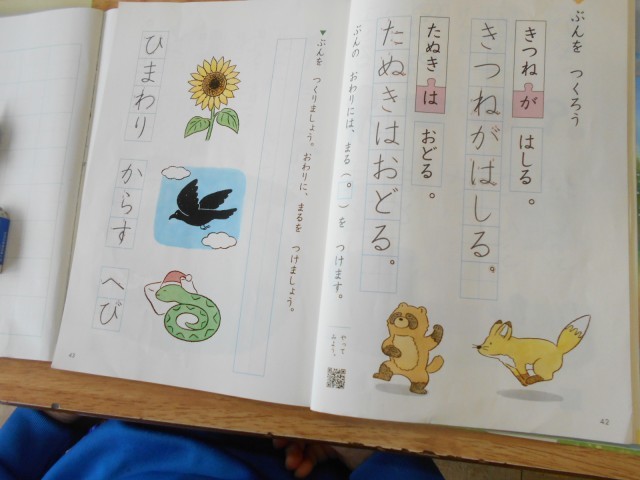 ぶんを つくろう
きつねが はしる。
きつねがはしる。
たぬきは おどる。
たぬきはおどる。
ぶんの おわりには、まる（。）を つけます。
やって みよう。
42
▼ぶんを つくりましょう。おわりに、まるを つけましょう。
ひまわり
からす
へび
43